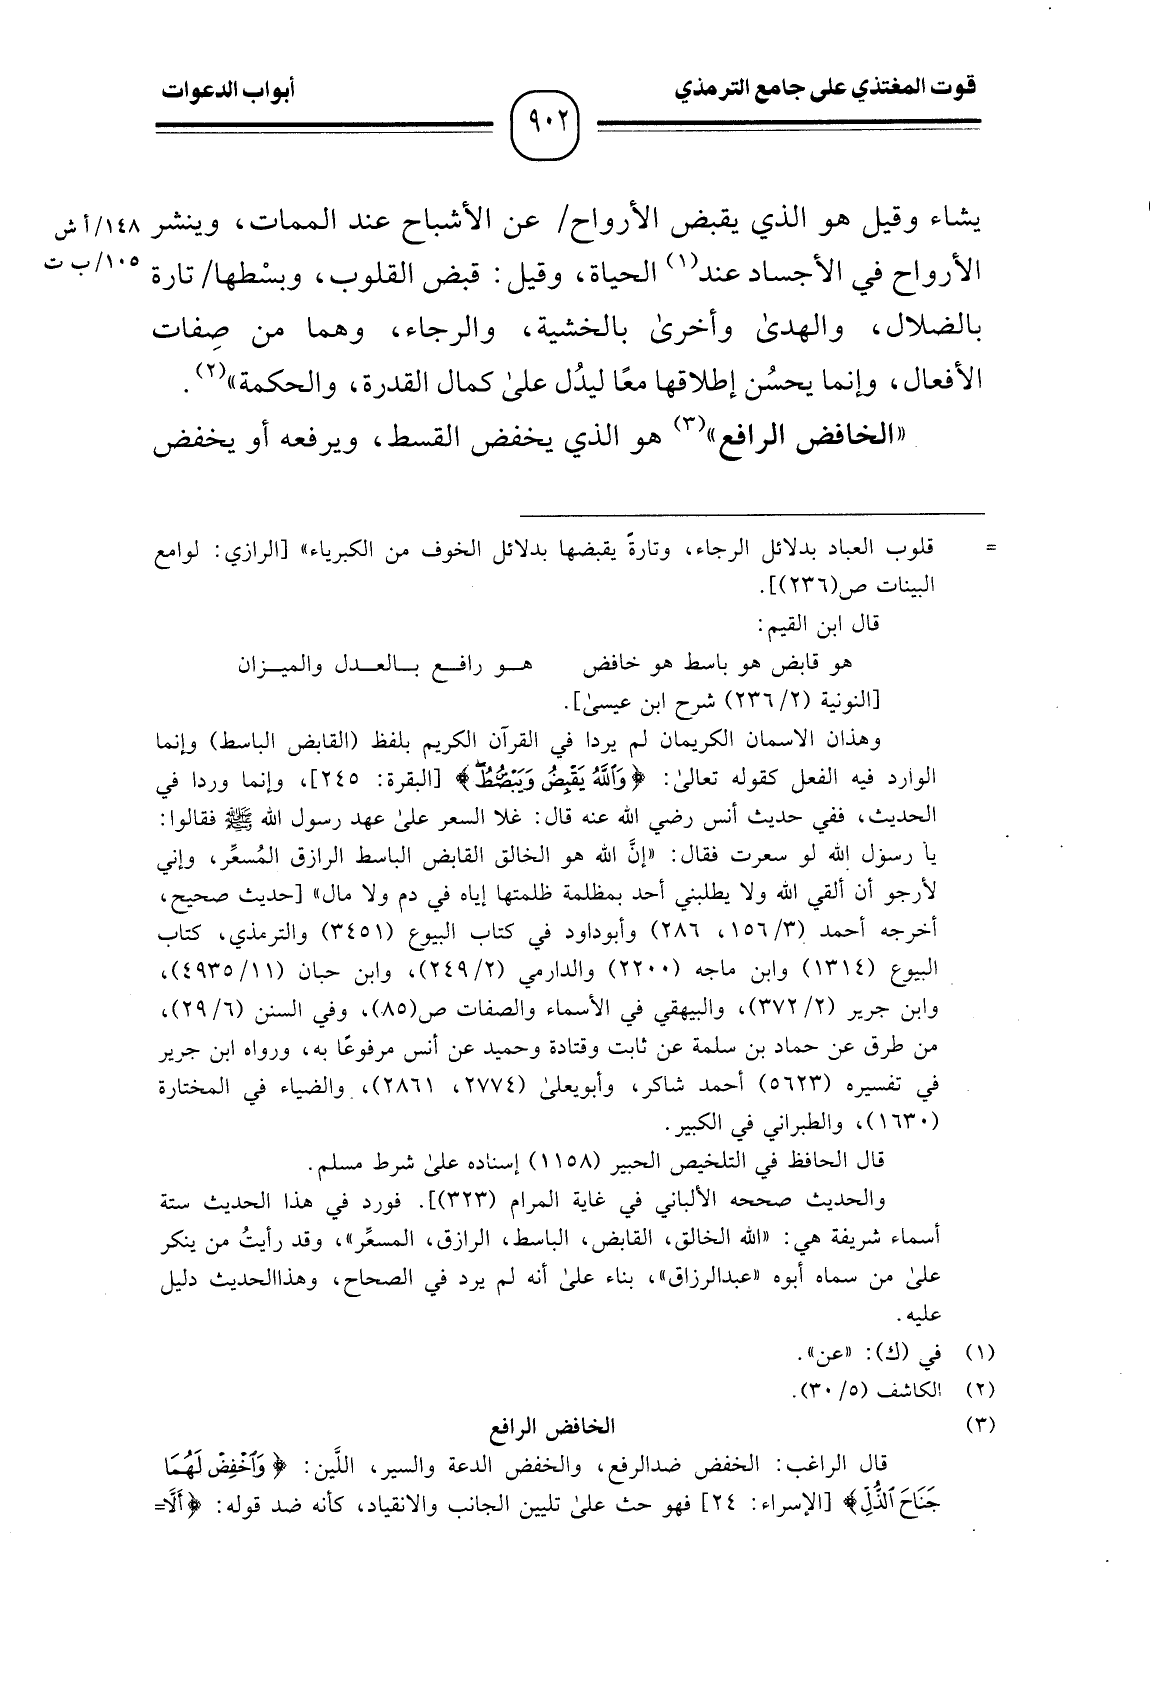 قوت المغتذي على جامع الترمذي
٩٠٢
أبواب الدعوات
يشاء وقيل هو الذي يقبض الأرواح/ عن الأشباح عند الممات، وينشر ١٤٨/أ ش
الأرواح في الأجساد عند(١) الحياة، وقيل: قبض القلوب، وبسْطها/ تارة ١٠٥/ب ت
بالضلال، والهدىٰ وأخرىٰ بالخشية، والرجاء، وهما من صِفات
الأفعال، وإنما يحسُن إطلاقها معًا ليدُل علىٰ كمال القدرة، والحكمة»(٢).
«الخافض الرافع»(٣) هو الذي يخفض القسط، ويرفعه أو يخفض
= قلوب العباد بدلائل الرجاء، وتارةً يقبضها بدلائل الخوف من الكبرياء» [الرازي: لوامع
البينات ص(٢٣٦)].
قال ابن القيم:
هو قابض هو باسط هو خافض هـو رافـع بـالعـدل والميـزان
[النونية (٢/ ٢٣٦) شرح ابن عيسىٰ].
وهذان الاسمان الكريمان لم يردا في القرآن الكريم بلفظ (القابض الباسط) وإنما
الوارد فيه الفعل كقوله تعالىٰ: ﴿وَٱللَّهُ يَقۡبِضُ وَيَبۡصُۜطُ﴾ [البقرة: ٢٤٥]، وإنما وردا في
الحديث، ففي حديث أنس رضي الله عنه قال: غلا السعر علىٰ عهد رسول الله ﷺ فقالوا:
يا رسول الله لو سعرت فقال: «إنَّ الله هو الخالق القابض الباسط الرازق المُسعِّر، وإني
لأرجو أن ألقي الله ولا يطلبني أحد بمظلمة ظلمتها إياه في دم ولا مال» [حديث صحيح،
أخرجه أحمد (٣/ ١٥٦، ٢٨٦) وأبوداود في كتاب البيوع (٣٤٥١) والترمذي، كتاب
البيوع (١٣١٤) وابن ماجه (٢٢٠٠) والدارمي (٢/ ٢٤٩)، وابن حبان (١١/ ٤٩٣٥)،
وابن جرير (٢/ ٣٧٢)، والبيهقي في الأسماء والصفات ص(٨٥)، وفي السنن (٦/ ٢٩)،
من طرق عن حماد بن سلمة عن ثابت وقتادة وحميد عن أنس مرفوعًا به، ورواه ابن جرير
في تفسيره (٥٦٢٣) أحمد شاكر، وأبويعلىٰ (٢٧٧٤، ٢٨٦١)، والضياء في المختارة
(١٦٣٠)، والطبراني في الكبير.
قال الحافظ في التلخيص الحبير (١١٥٨) إسناده علىٰ شرط مسلم.
والحديث صححه الألباني في غاية المرام (٣٢٣)]. فورد في هذا الحديث ستة
أسماء شريفة هي: «الله الخالق، القابض، الباسط، الرازق، المسعِّر»، وقد رأيتُ من ينكر
علىٰ من سماه أبوه «عبدالرزاق»، بناء علىٰ أنه لم يرد في الصحاح، وهذاالحديث دليل
عليه.
(١) في (ك): «عن».
(٢) الكاشف (٥/ ٣٠).
(٣) الخافض الرافع
قال الراغب: الخفض ضدالرفع، والخفض الدعة والسير، اللَّين: ﴿وَٱخۡفِضۡ لَهُمَا
جَنَاحَ ٱلذُّلِّ﴾ [الإسراء: ٢٤] فهو حث علىٰ تليين الجانب والانقياد، كأنه ضد قوله: ﴿أَلَّا=